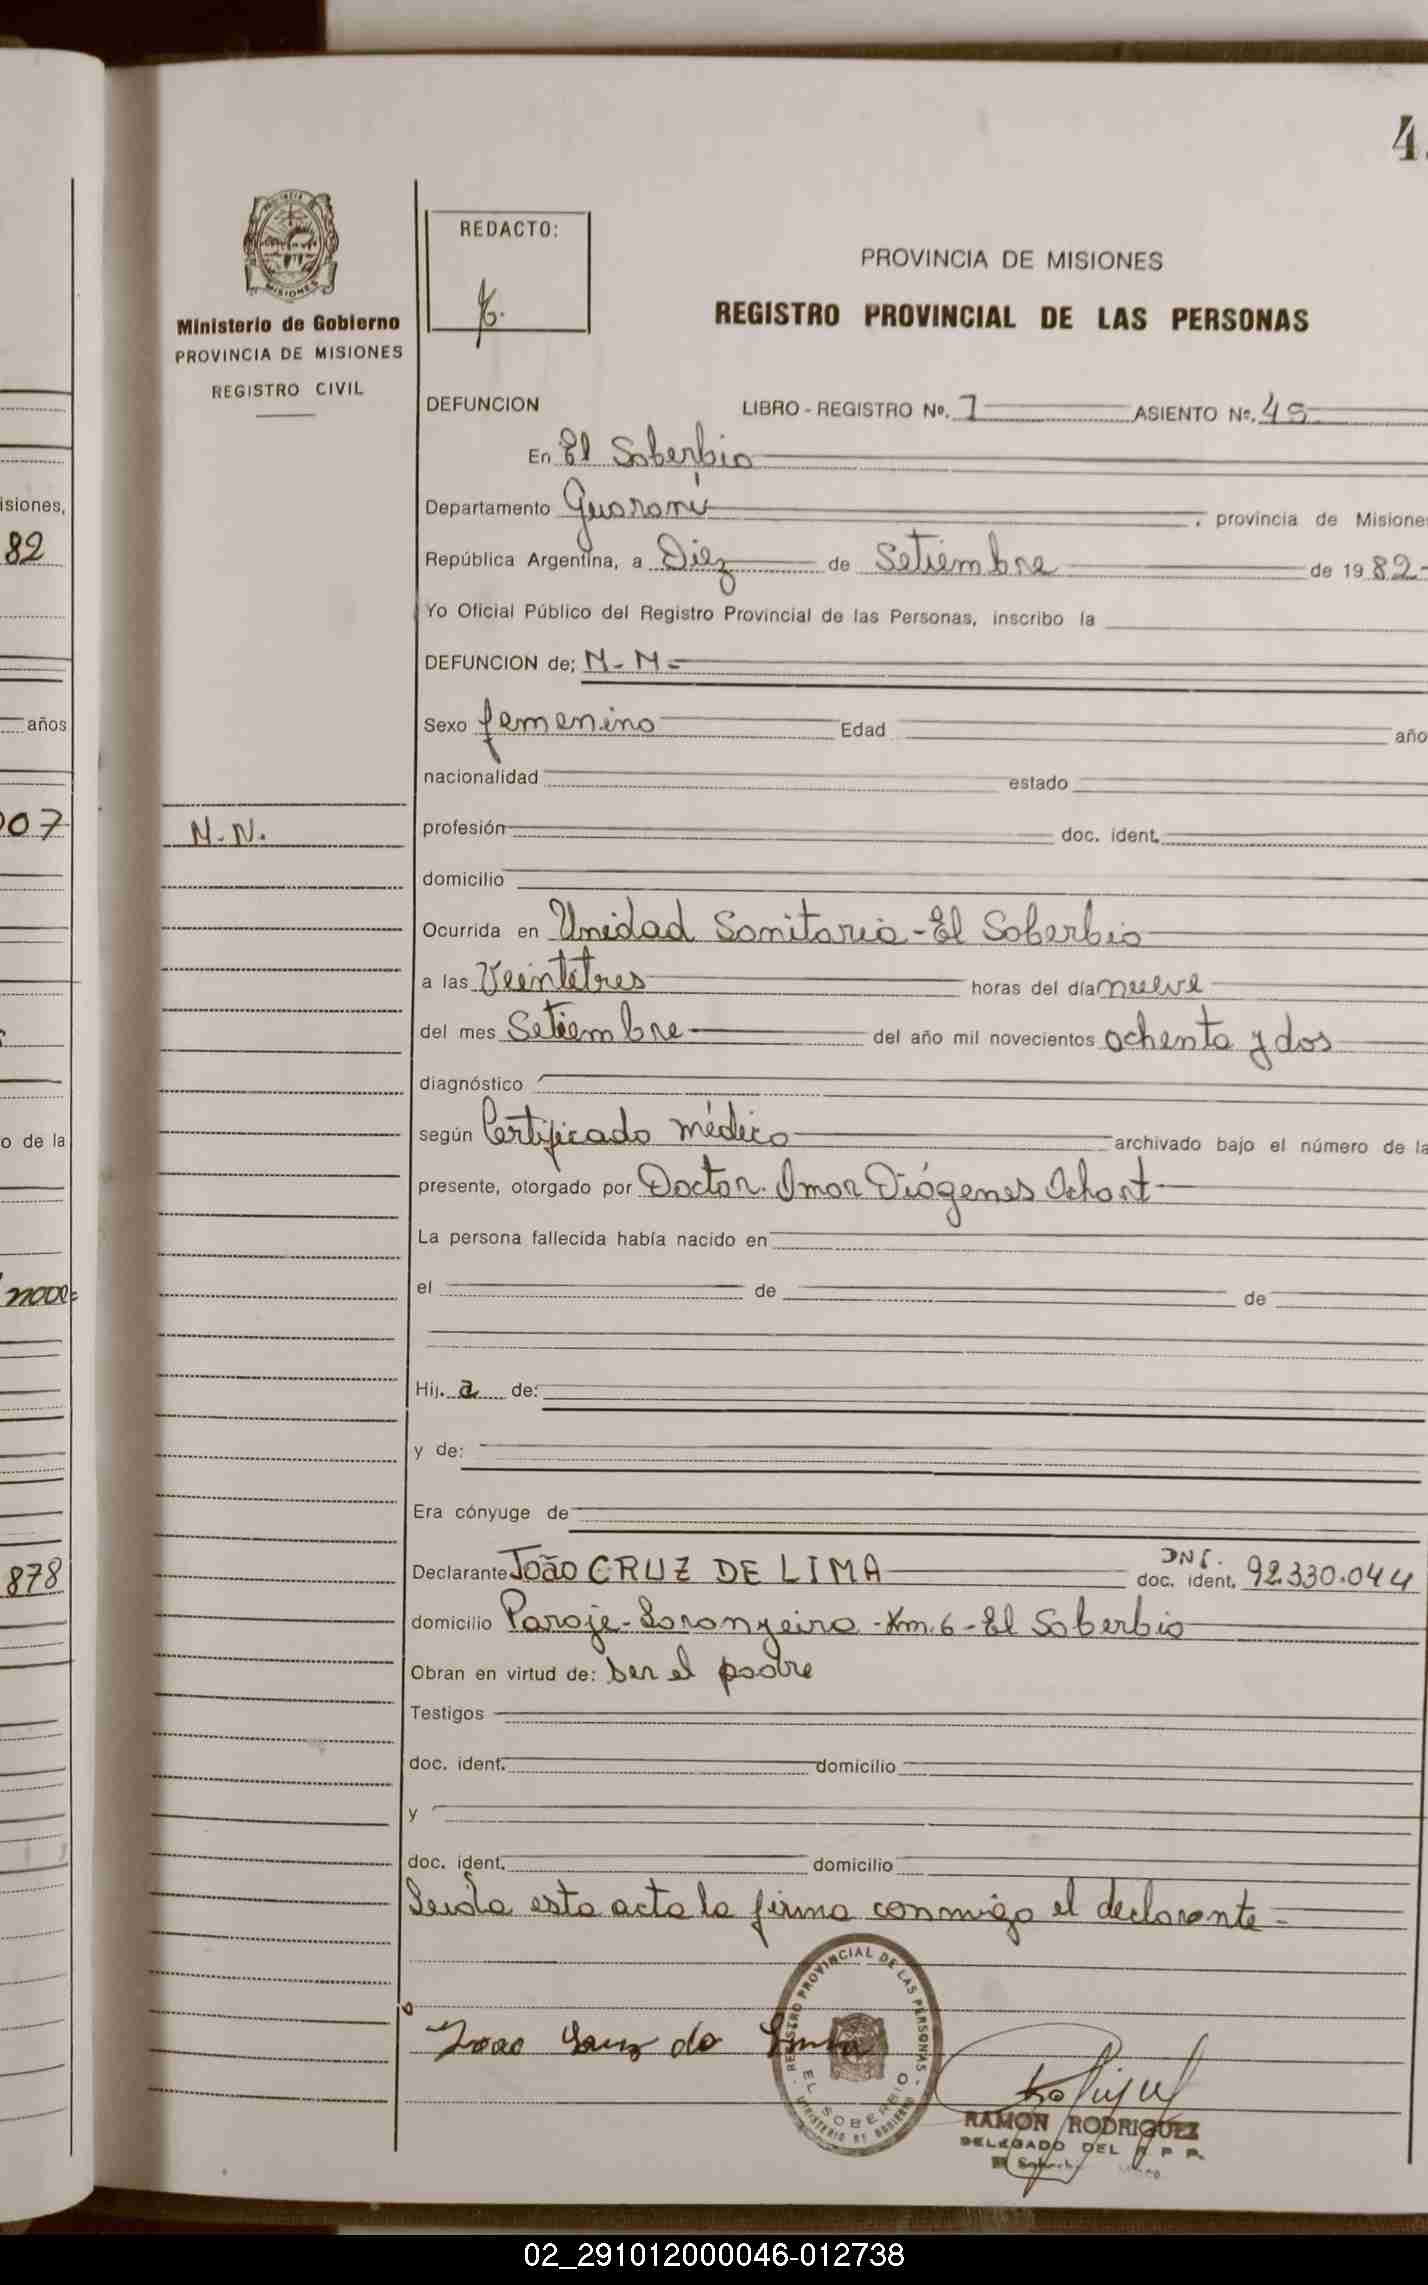 4
PROVINCIA DE
MISIONES
Ministerio de Gobierno
PROVINCIA DE MISIONES
REGISTRO CIVIL
REDACTO:
PROVINCIA DE MISIONES
REGISTRO PROVINCIAL DE LAS PERSONAS
DEFUNCION LIBRO - REGISTRO Nº. 1 ASIENTO Nº. 45
En El Soberbio
Departamento Guaraní , provincia de Misiones
República Argentina, a Diez de Setiembre de 1982-
Yo Oficial Público del Registro Provincial de las Personas, inscribo la
DEFUNCION de; N-N=
Sexo femenino Edad año
nacionalidad estado
profesión doc. ident.
N.N.
domicilio
Ocurrida en Unidad Sanitaria-El Soberbio
a las Veintetres horas del día nueve
del mes Setiembre del año mil novecientos ochenta y dos
diagnóstico
según Certificado médico archivado bajo el número de la
presente, otorgado por Doctor. Omar Diógenes Ochart
La persona fallecida había nacido en
el de de
Hij. a de:
y de:
Era cónyuge de
Declarante João CRUZ DE LIMA DNI. doc. ident. 92.330.044
domicilio Paraje-Laranjeira-Km.6-El Soberbio
Obran en virtud de: ser el padre
Testigos
doc. ident. domicilio
y
doc. ident. domicilio
Leída esta acta la firma conmigo el declarante-
Joao Cruz de Lima
REGISTRO PROVINCIAL DE LAS PERSONAS
EL SOBERBIO
MINISTERIO DE GOBIERNO
RAMON RODRIGUEZ
DELEGADO DEL R. P. P.
isiones,
82
años
007
o de la
878
02_291012000046-012738